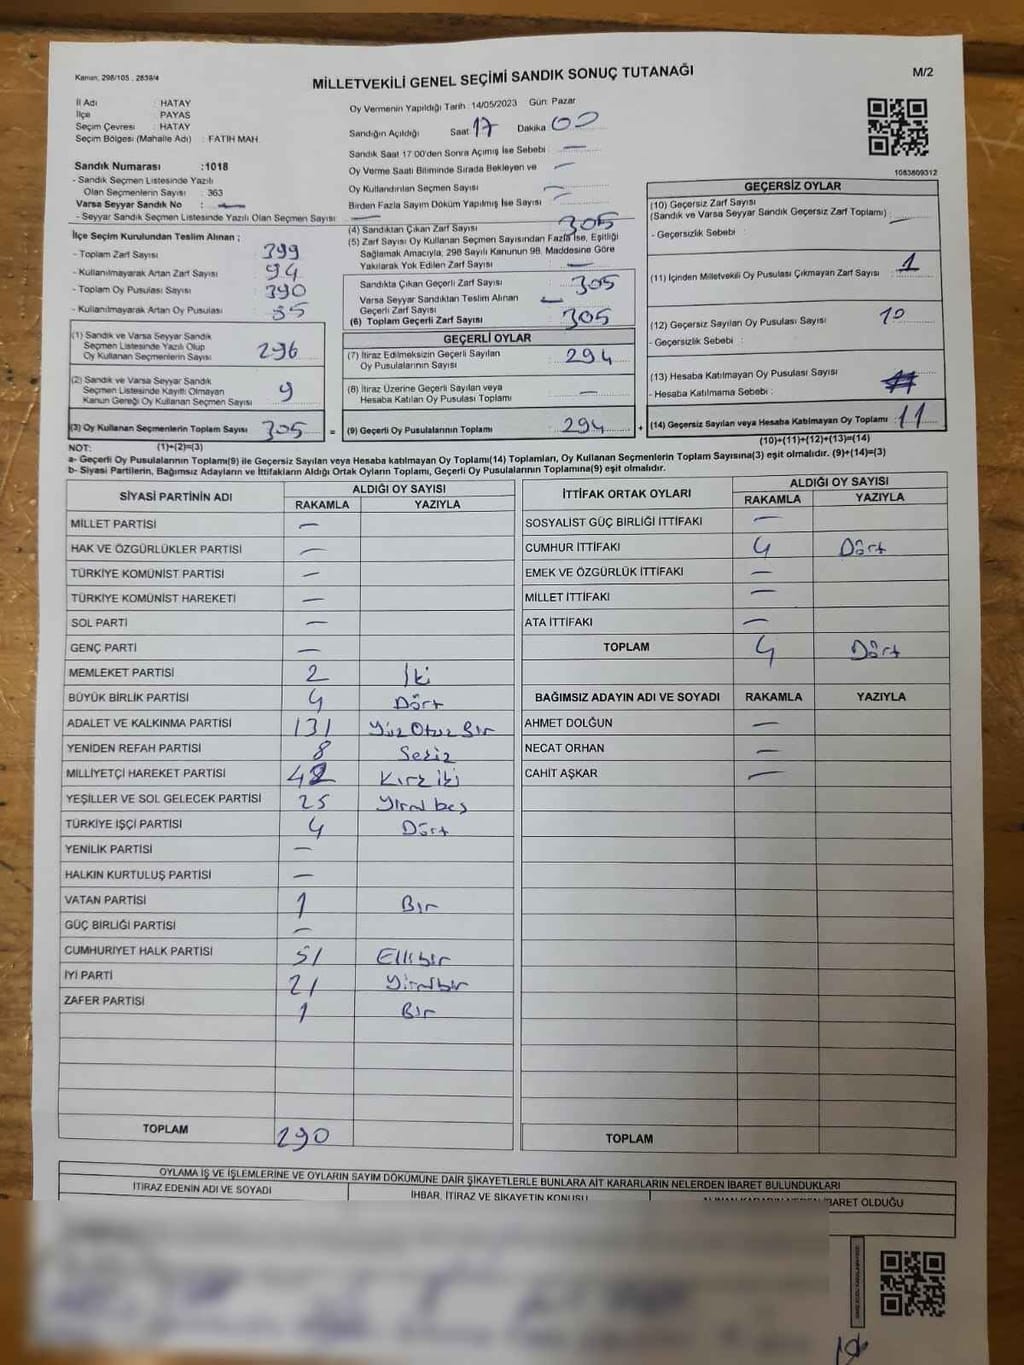 Kanun, 298/105 , 2839/4
MİLLETVEKİLİ GENEL SEÇİMİ SANDIK SONUÇ TUTANAĞI
M/2
İl Adı : HATAY
İlçe : PAYAS
Seçim Çevresi : HATAY
Seçim Bölgesi (Mahalle Adı) : FATİH MAH
Sandık Numarası :1018
- Sandık Seçmen Listesinde Yazılı
Olan Seçmenlerin Sayısı : 363
Varsa Seyyar Sandık No : —
- Seyyar Sandık Seçmen Listesinde Yazılı Olan Seçmen Sayısı : —
Oy Vermenin Yapıldığı Tarih :14/05/2023 Gün: Pazar
Sandığın Açıldığı Saat 17 Dakika 00
Sandık Saat 17:00'den Sonra Açımış İse Sebebi : —
Oy Verme Saati Bitiminde Sırada Bekleyen ve —
Oy Kullandırılan Seçmen Sayısı —
Birden Fazla Sayım Döküm Yapılmış İse Sayısı —
1083809312
İlçe Seçim Kurulundan Teslim Alınan ;
- Toplam Zarf Sayısı 399
- Kullanılmayarak Artan Zarf Sayısı 94
- Toplam Oy Pusulası Sayısı 390
- Kullanılmayarak Artan Oy Pusulası 85
(1) Sandık ve Varsa Seyyar Sandık
Seçmen Listesinde Yazılı Olup
Oy Kullanan Seçmenlerin Sayısı 296
(2) Sandık ve Varsa Seyyar Sandık
Seçmen Listesinde Kayıtlı Olmayan
Kanun Gereği Oy Kullanan Seçmen Sayısı 9
(3) Oy Kullanan Seçmenlerin Toplam Sayısı 305
(4) Sandıktan Çıkan Zarf Sayısı 305
(5) Zarf Sayısı Oy Kullanan Seçmen Sayısından Fazla İse, Eşitliği
Sağlamak Amacıyla, 298 Sayılı Kanunun 98. Maddesine Göre
Yakılarak Yok Edilen Zarf Sayısı —
Sandıkta Çıkan Geçerli Zarf Sayısı : 305
Varsa Seyyar Sandıktan Teslim Alınan
Geçerli Zarf Sayısı —
(6) Toplam Geçerli Zarf Sayısı 305
GEÇERLİ OYLAR
(7) İtiraz Edilmeksizin Geçerli Sayılan
Oy Pusulalarının Sayısı 294
(8) İtiraz Üzerine Geçerli Sayılan veya
Hesaba Katılan Oy Pusulası Toplamı —
= (9) Geçerli Oy Pusulalarının Toplamı 294 +
GEÇERSİZ OYLAR
(10) Geçersiz Zarf Sayısı
(Sandık ve Varsa Seyyar Sandık Geçersiz Zarf Toplamı) : —
- Geçersizlik Sebebi :
(11) İçinden Milletvekili Oy Pusulası Çıkmayan Zarf Sayısı : 1
(12) Geçersiz Sayılan Oy Pusulası Sayısı 10
- Geçersizlik Sebebi :
(13) Hesaba Katılmayan Oy Pusulası Sayısı
- Hesaba Katılmama Sebebi :
(14) Geçersiz Sayılan veya Hesaba Katılmayan Oy Toplamı 11
NOT: (1)+(2)=(3)
(10)+(11)+(12)+(13)=(14)
a- Geçerli Oy Pusulalarının Toplamı(9) ile Geçersiz Sayılan veya Hesaba Katılmayan Oy Toplamı(14) Toplamları, Oy Kullanan Seçmenlerin Toplam Sayısına(3) eşit olmalıdır. (9)+(14)=(3)
b- Siyasi Partilerin, Bağımsız Adayların ve İttifakların Aldığı Ortak Oyların Toplamı, Geçerli Oy Pusulalarının Toplamına(9) eşit olmalıdır.
SİYASİ PARTİNİN ADI ALDIĞI OY SAYISI
RAKAMLA YAZIYLA
MİLLET PARTİSİ —
HAK VE ÖZGÜRLÜKLER PARTİSİ —
TÜRKİYE KOMÜNİST PARTİSİ —
TÜRKİYE KOMÜNİST HAREKETİ —
SOL PARTİ —
GENÇ PARTİ —
MEMLEKET PARTİSİ 2 İki
BÜYÜK BİRLİK PARTİSİ 4 Dört
ADALET VE KALKINMA PARTİSİ 131 Yüz Otuz Bir
YENİDEN REFAH PARTİSİ 8 Sekiz
MİLLİYETÇİ HAREKET PARTİSİ 42 Kırk iki
YEŞİLLER VE SOL GELECEK PARTİSİ 25 Yirmi beş
TÜRKİYE İŞÇİ PARTİSİ 4 Dört
YENİLİK PARTİSİ —
HALKIN KURTULUŞ PARTİSİ —
VATAN PARTİSİ 1 Bir
GÜÇ BİRLİĞİ PARTİSİ —
CUMHURİYET HALK PARTİSİ 51 Ellibir
İYİ PARTİ 21 Yirmibir
ZAFER PARTİSİ 1 Bir
TOPLAM 290
İTTİFAK ORTAK OYLARI ALDIĞI OY SAYISI
RAKAMLA YAZIYLA
SOSYALİST GÜÇ BİRLİĞİ İTTİFAKI —
CUMHUR İTTİFAKI 4 Dört
EMEK VE ÖZGÜRLÜK İTTİFAKI —
MİLLET İTTİFAKI —
ATA İTTİFAKI —
TOPLAM 4 Dört
BAĞIMSIZ ADAYIN ADI VE SOYADI RAKAMLA YAZIYLA
AHMET DOLĞUN —
NECAT ORHAN —
CAHİT AŞKAR —
TOPLAM
OYLAMA İŞ VE İŞLEMLERİNE VE OYLARIN SAYIM DÖKÜMÜNE DAİR ŞİKAYETLERLE BUNLARA AİT KARARLARIN NELERDEN İBARET BULUNDUKLARI
İTİRAZ EDENİN ADI VE SOYADI
İHBAR, İTİRAZ VE ŞİKAYETİN KONUSU
İBARET OLDUĞU